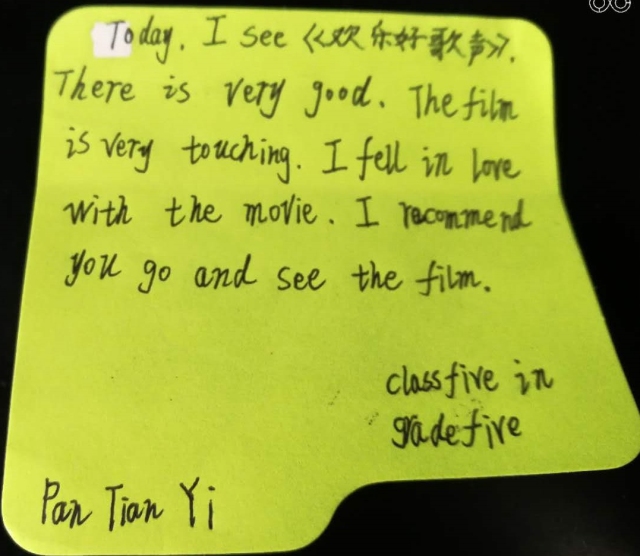 Today, I see 《欢乐好歌声》.
There is very good. The film
is very touching. I fell in love
with the movie. I recommend
you go and see the film.
class five in
grade five
Pan Tian Yi